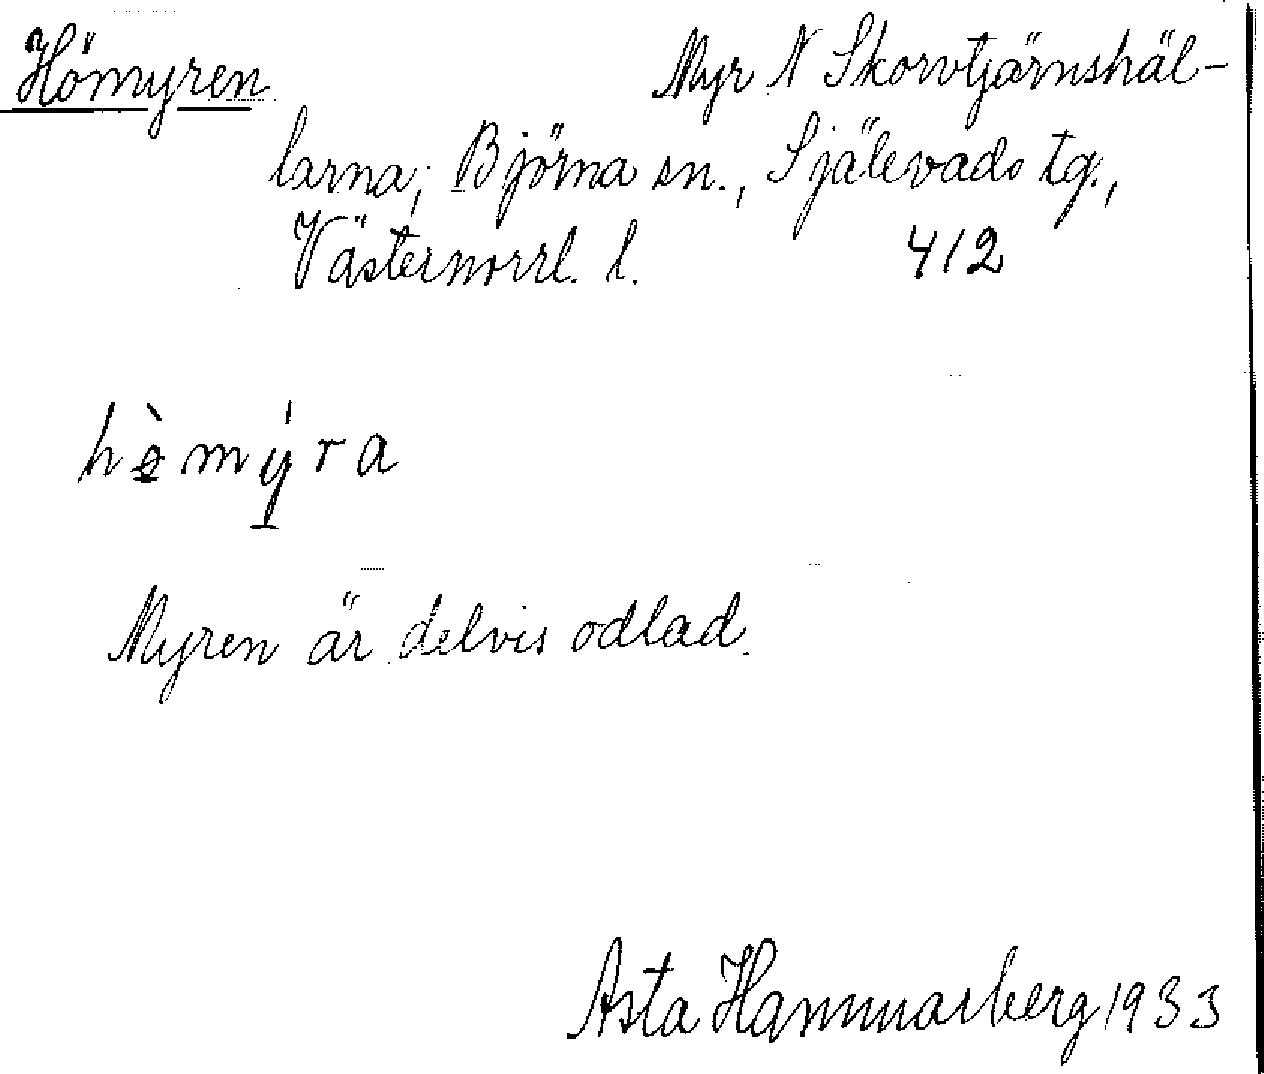 Hömyren Myr N Skorvtjärnshäl-
larna; Björna sn., Själevads tg.,
Västernorrl. l. 412
hø̀mýra
Myren är delvis odlad.
Asta Hammarberg 1933